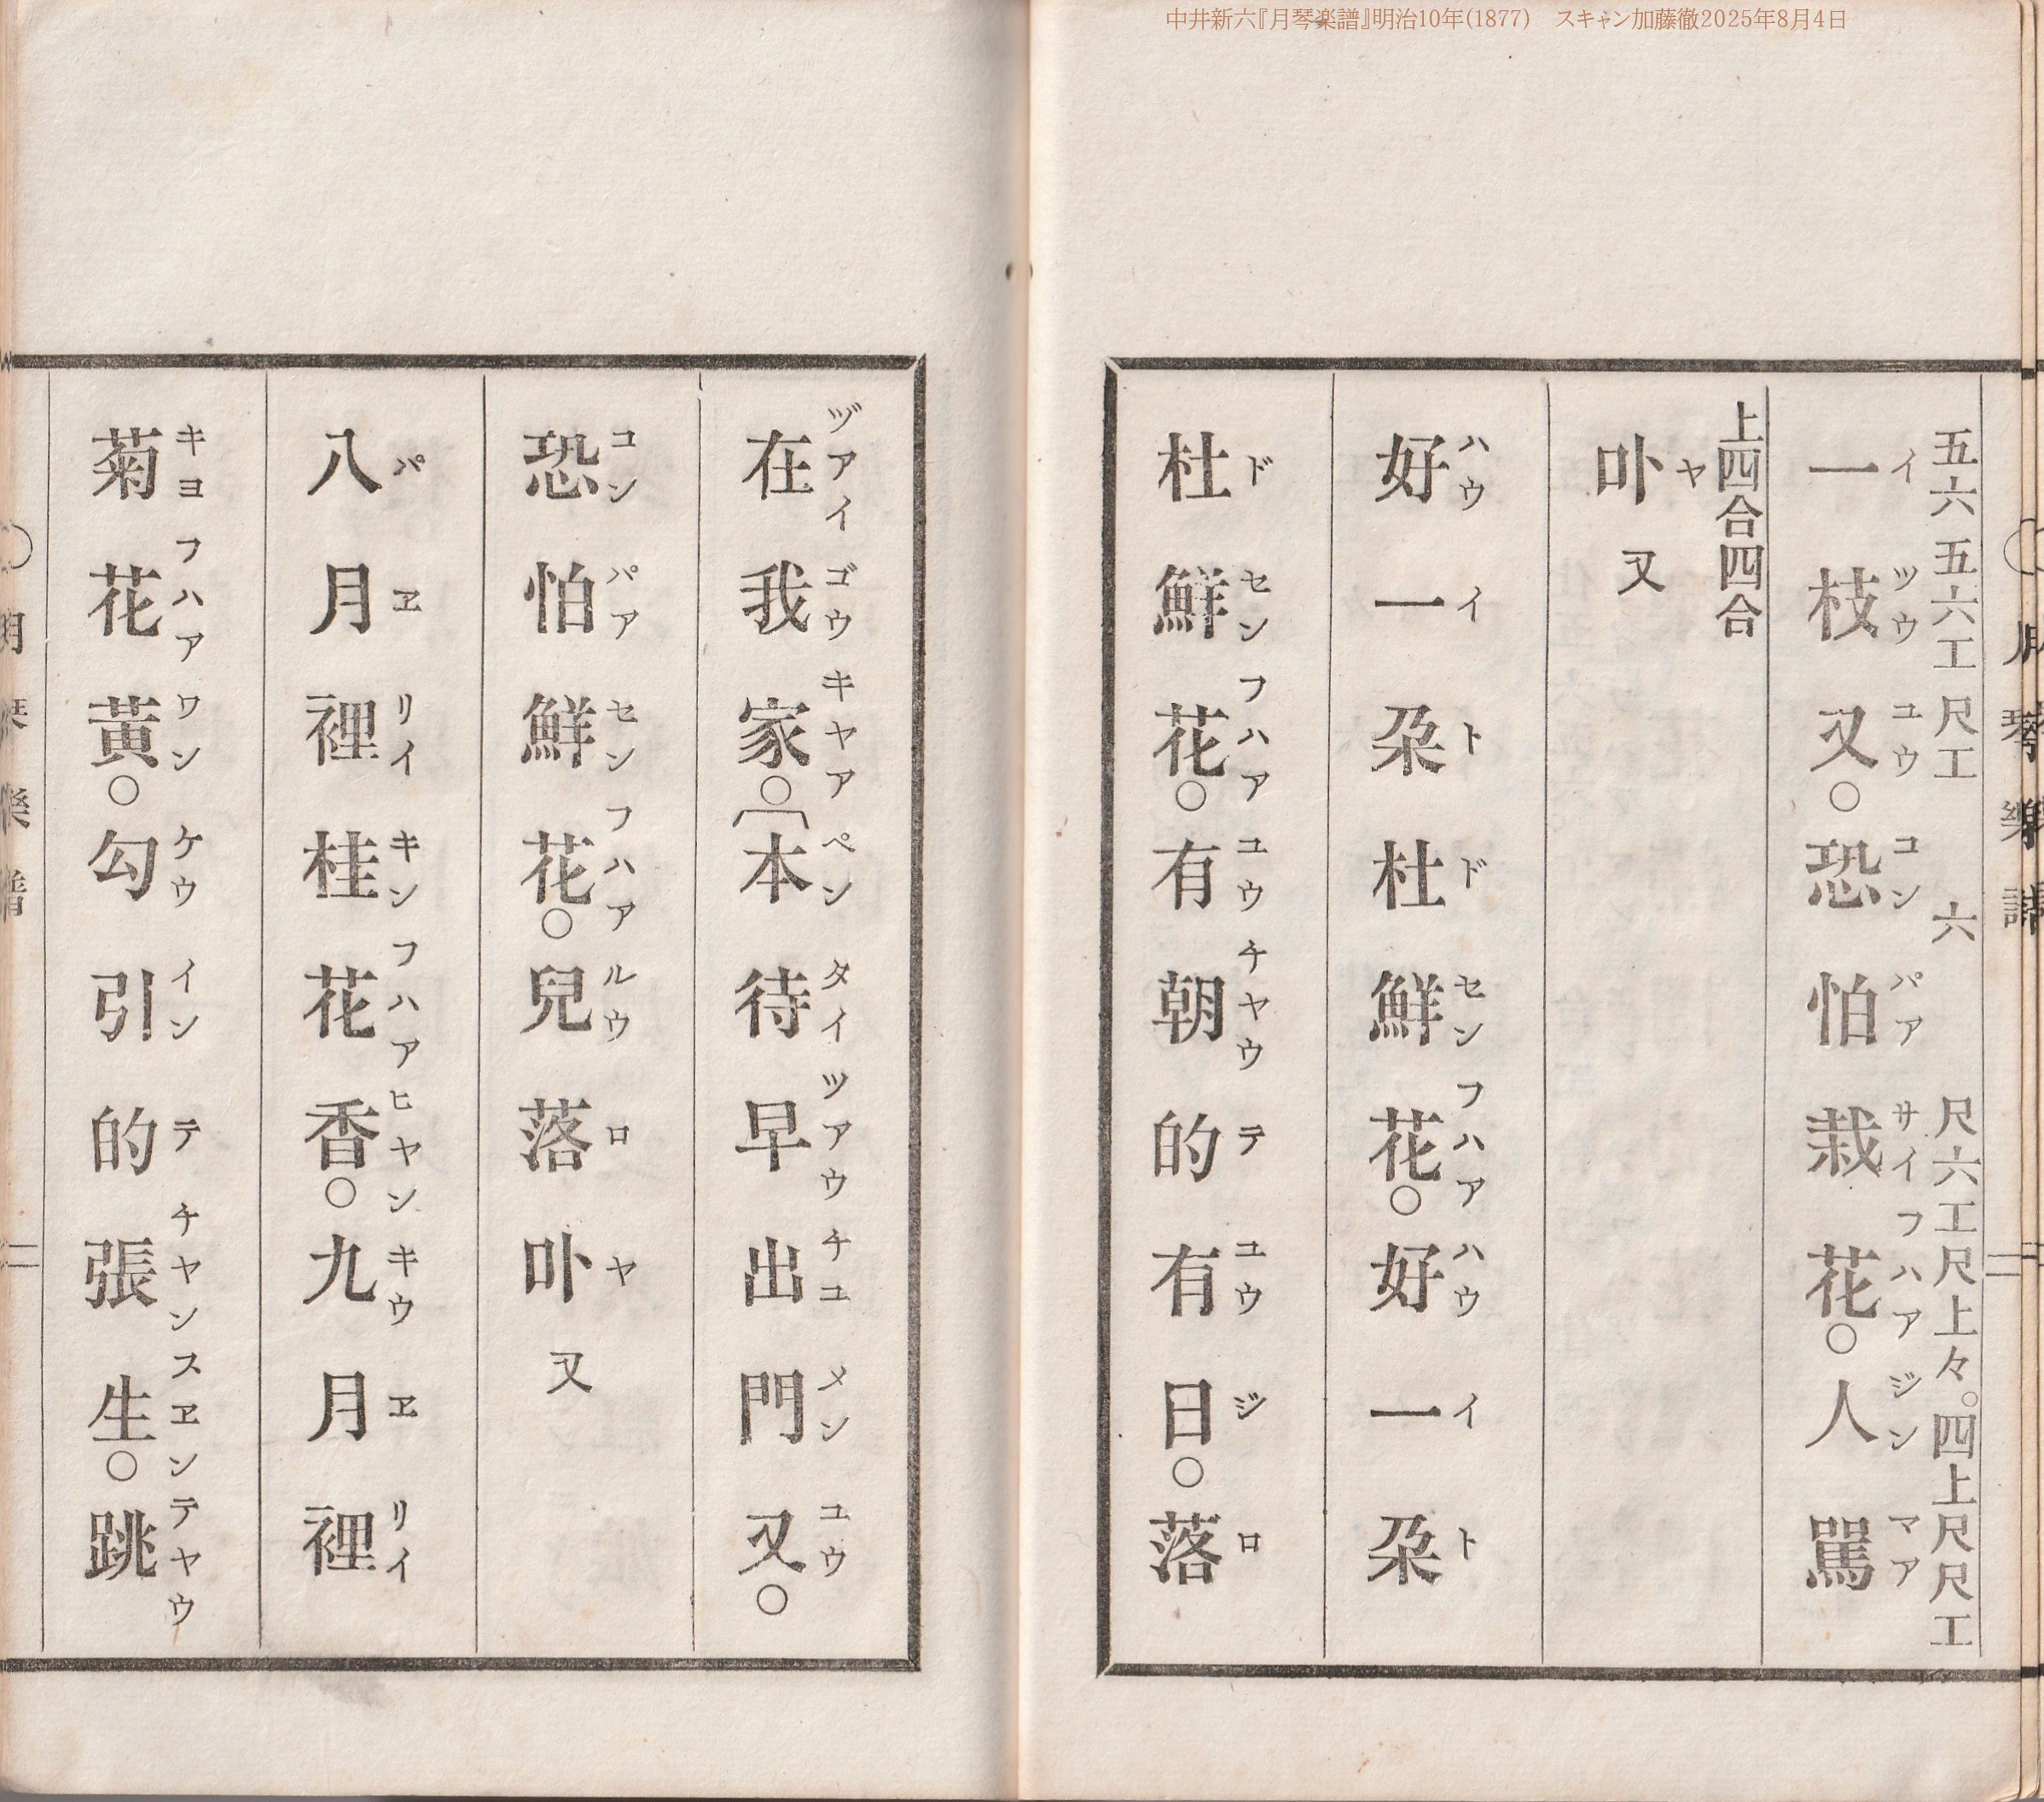 中井新六『月琴楽譜』明治10年(1877)　スキャン加藤徹2025年8月4日
月琴樂譜
二
五六五六工尺工六尺六工尺上々。四上尺尺工
イ ツウ ユウ コン パア サイ フハア ジン マア
一枝又○恐怕栽花○人罵
上四合四合
ヤ
卟又
ハウ イ ト ド セン フハア ハウ イ ト
好一朶杜鮮花○好一朶
ド セン フハア ユウ チヤウ テ ユウ ジ ロ
杜鮮花○有朝的有日○落
ヅアイ ゴウ キヤア ペン タイ ツアウ チユ メン ユウ
在我家○〔本待早出門又○
コン パア セン フハア ルウ ロ ヤ
恐怕鮮花○兒落卟又
パ ヱ リイ キン フハア ヒヤン キウ ヱ リイ
八月裡桂花香○九月裡
キヨ フハア ワン ケウ イン テ チヤン スヱン テヤウ
菊花黃○勾引的張生○跳